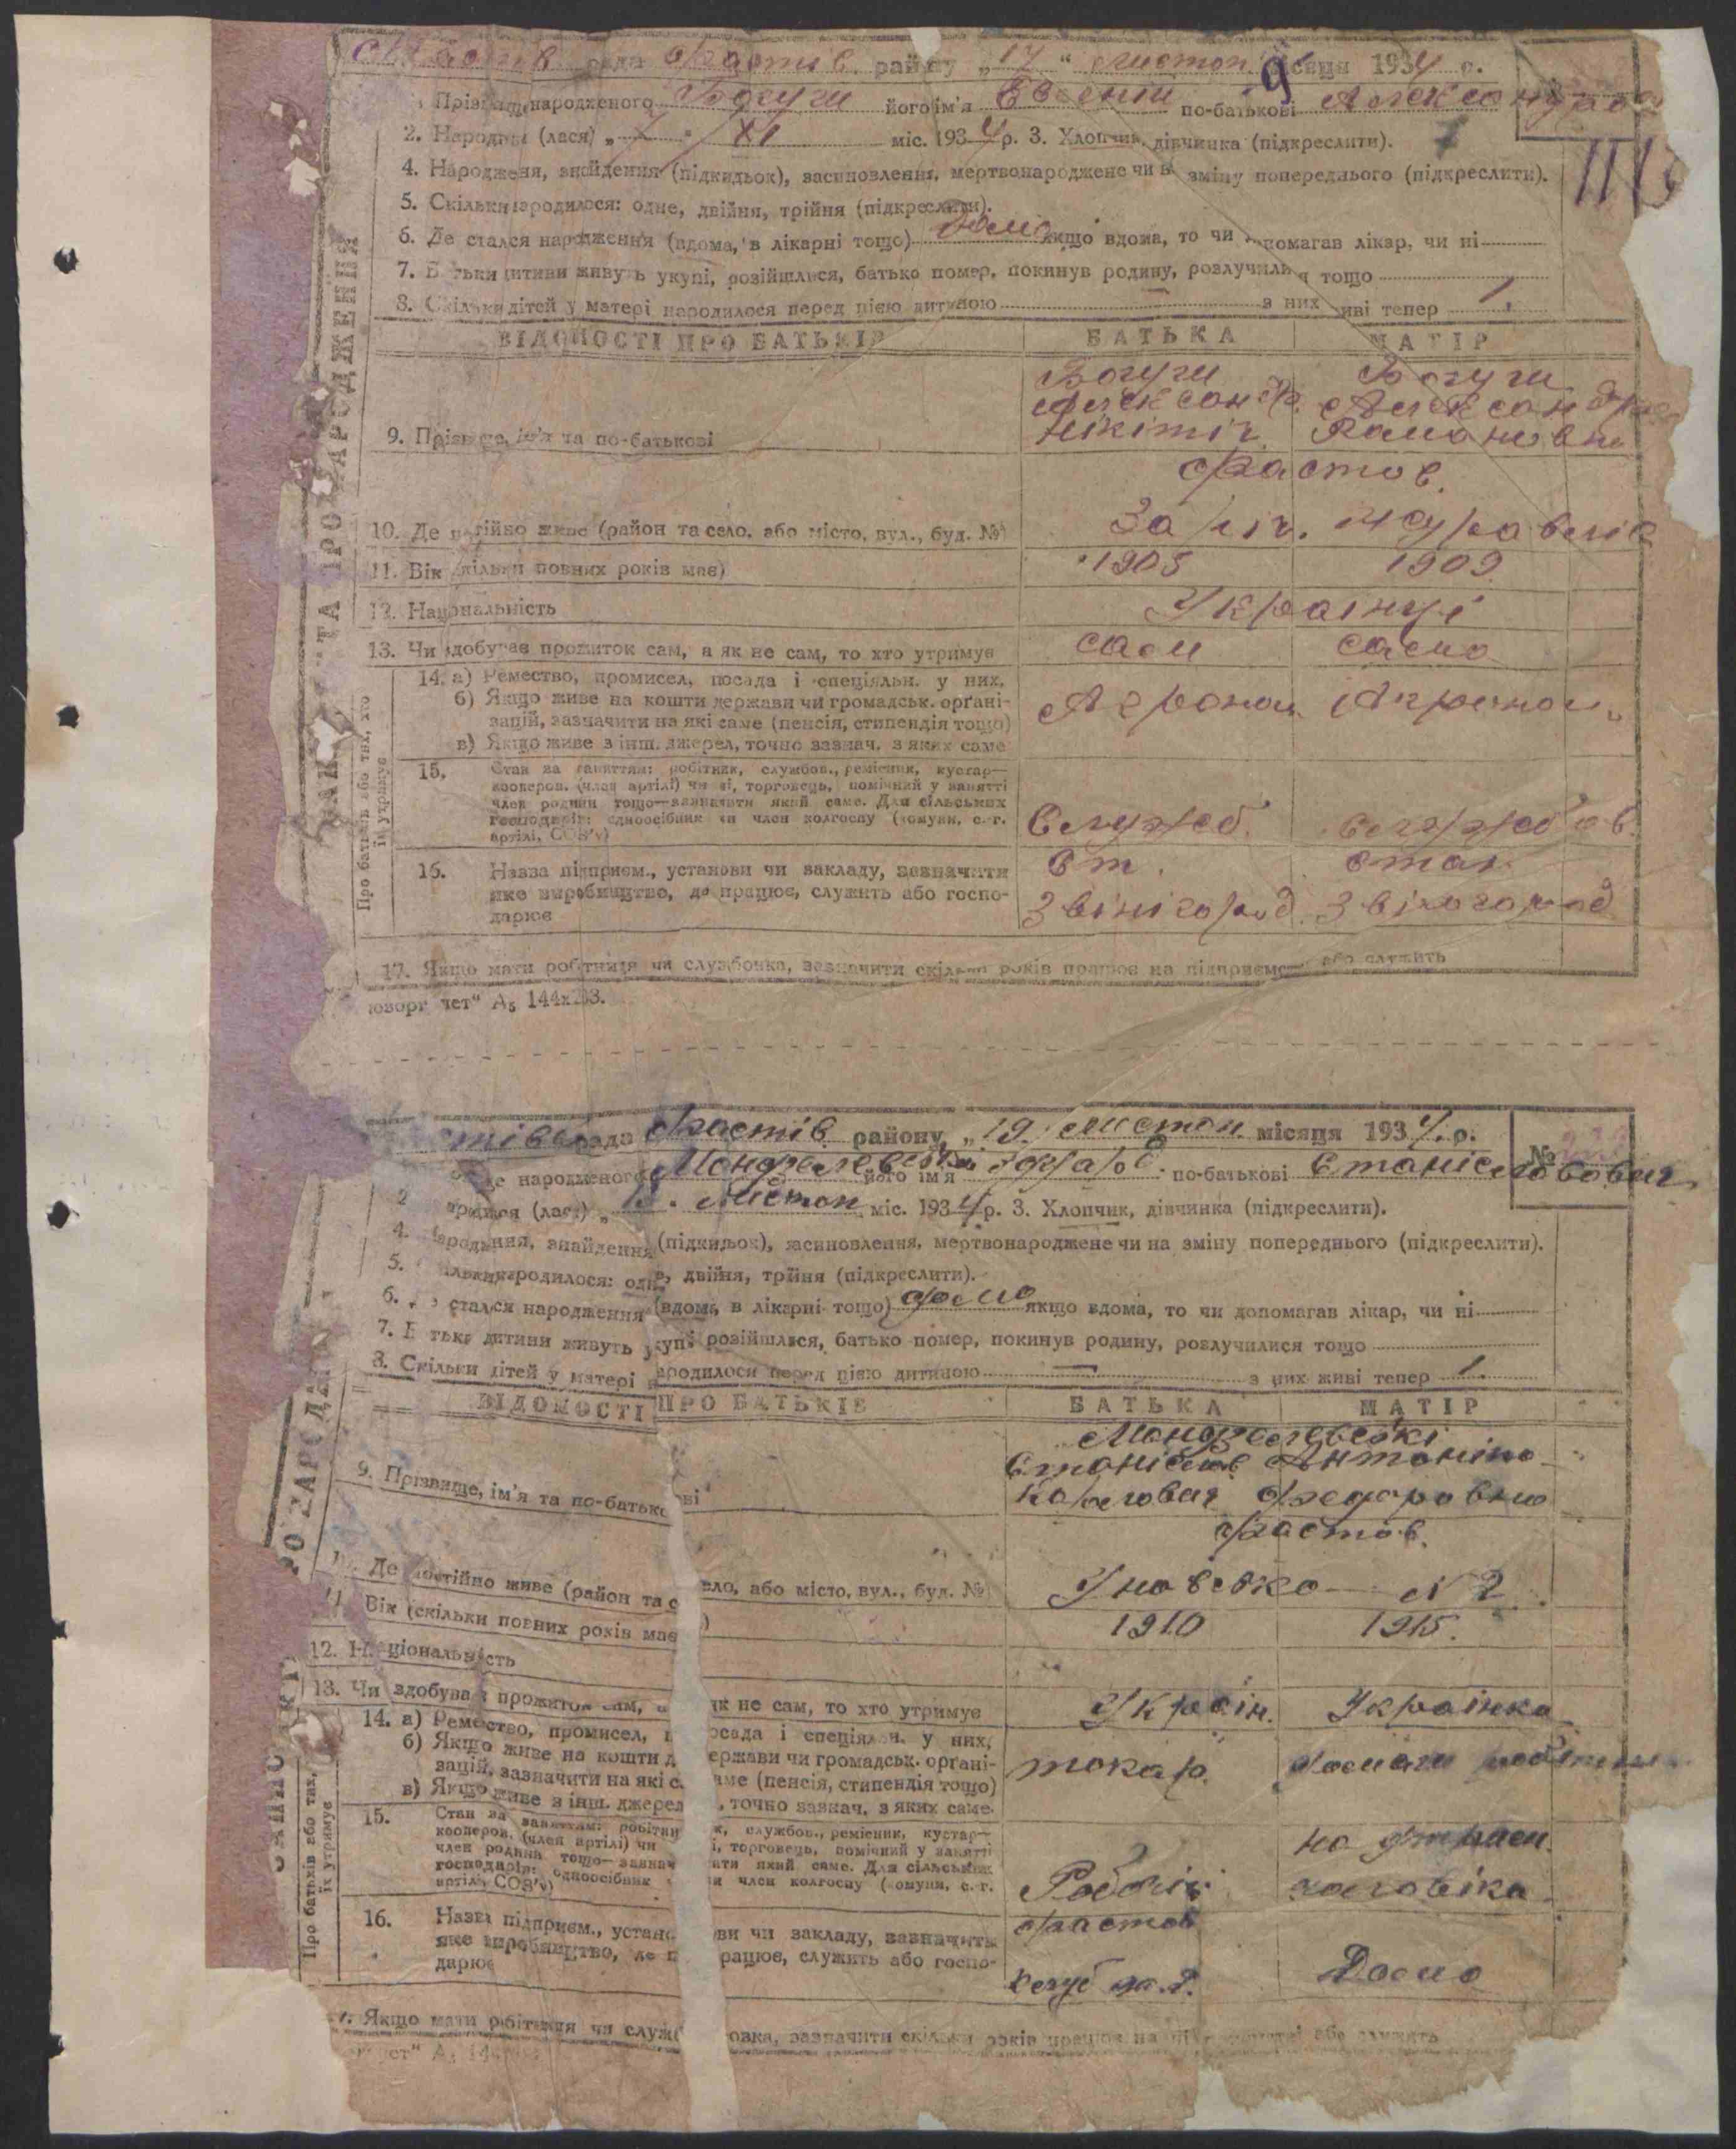 Фастів рада Фастів району „17“ листоп. місяця 1934 р.
Прізвище народженого Богуги його ім'я Евгеній по-батькові Александров
2. Народився (лася) „7“ XI міс. 1934 р. 3. Хлопчик, дівчинка (підкреслити).
4. Народження, знайдення (підкидьок), засиновлення, мертвонароджене чи на зміну попереднього (підкреслити).
5. Скільки народилося: одне, двійня, трійня (підкреслити).
6. Де стался народження (вдома, в лікарні тощо) дома якщо вдома, то чи допомагав лікар, чи ні
7. Батьки дитини живуть укупі, розійшлися, батько помер, покинув родину, розлучилися тощо
8. Скільки дітей у матері народилося перед цією дитиною — з них живі тепер 1
ВІДОМОСТІ ПРО БАТЬКІВ БАТЬКА МАТІР
Богуги Богуги
Александр. Александра
9. Прізвище, ім'я та по-батькові Нікітіч Рамановна
Фастов.
10. Де постійно живе (район та село, або місто, вул., буд. №)
11. Вік (скільки повних років має) 1905 1909
12. Національність Українці
13. Чи здобуває прожиток сам, а як не сам, то хто утримує сам сама
14. а) Ремество, промисел, посада і спеціяльн. у них.
б) Якщо живе на кошти держави чи громадськ. орґані- Агроном Агроном
зацій, зазначити на які саме (пенсія, стипендія тощо)
в) Якщо живе з інш. джерел, точно зазнач. з яких саме
15. Стан за заняттям: робітник, службов., ремісник, кустар—
кооперов. (член артілі) чи ні, торговець, помічний у занятті
член родини тощо—зазначити який саме. Для сільських
господарів: одноосібник чи член колгоспу (комуни, с.-г. Служб. службов.
артілі, СОЗ'у)
16. Назва підприєм., установи чи закладу, зазначити Ст. стан.
яке виробництво, де працює, служить або госпо- Звінігород. Звіногород
дарює
17. Якщо мати робітниця чи службовка, зазначити скільки років працює на підприємстві або служить
Про батьків або тих, хто їх утримує
144х203.
Фастів району, „19. листоп. місяця 1934. р. №
народженого його ім'я по-батькові Станіславовач
2 народився (лася) „ листоп міс. 1934 р. 3. Хлопчик, дівчинка (підкреслити).
4. Народження, знайдення (підкидьок), засиновлення, мертвонароджене чи на зміну попереднього (підкреслити).
5. Скільки народилося: одне, двійня, трійня (підкреслити).
6. Де стался народження (вдома, в лікарні тощо) дома якщо вдома, то чи допомагав лікар, чи ні
7. Батьки дитини живуть укупі розійшлися, батько помер, покинув родину, розлучилися тощо
8. Скільки дітей у матері народилося перед цією дитиною — з них живі тепер 1.
ВІДОМОСТІ ПРО БАТЬКІВ БАТЬКА МАТІР
Станіслав Антаніна
9. Прізвище, ім'я та по-батькові Карловач Федаровна
Фастов.
10. Де постійно живе (район та село, або місто, вул., буд. № N 2
11. Вік (скільки повних років має) 1910 1915.
12. Національність
13. Чи здобуває прожиток сам, а як не сам, то хто утримує Україн. Українка
14. а) Ремество, промисел, посада і спеціяльн. у них,
б) Якщо живе на кошти держави чи громадськ. орґані- токар.
зацій, зазначити на які саме (пенсія, стипендія тощо)
в) Якщо живе з інш. джерел, точно зазнач. з яких саме.
15. Стан за заняттям: робітник, службов., ремісник, кустар—
кооперов. (член артілі) чи ні, торговець, помічний у занятті на утриман.
член родини тощо—зазначити який саме. Для сільських
господарів: одноосібник чи член колгоспу (комуни, с.-г. Робочій чоловіка
артілі, СОЗ'у)
16. Назва підприєм., установи чи закладу, зазначить Фастов
яке виробництво, де працює, служить або госпо-
дарює Дома
Якщо мати робітниця чи службовка, зазначити скільки років працює на підприємстві або служить
Про батьків або тих, їх утримує